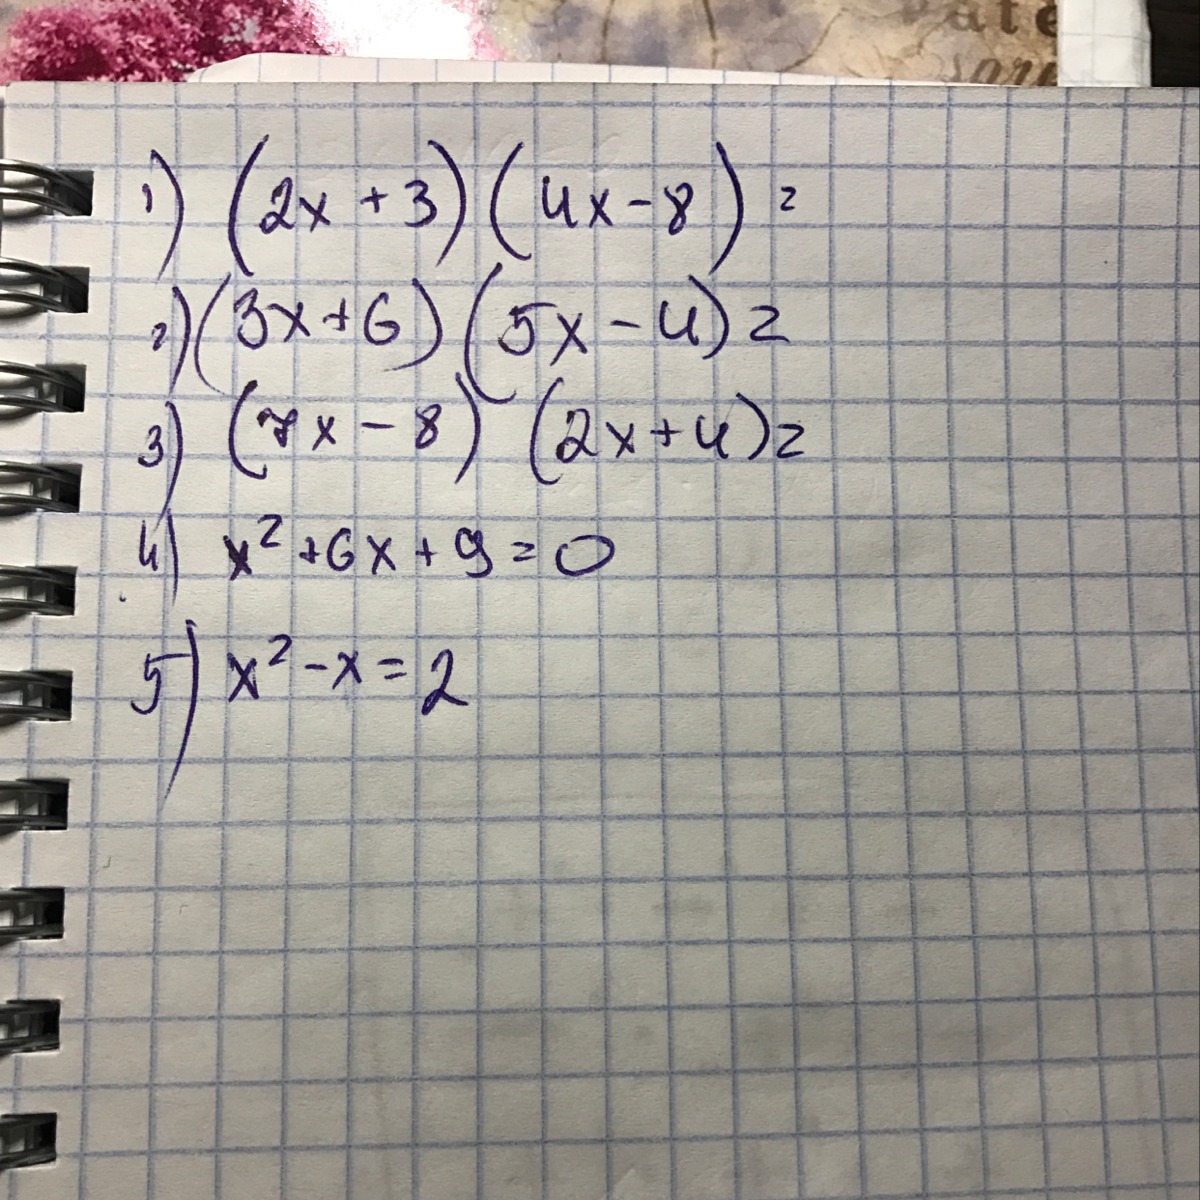 ate
1) (2x + 3) (4x - 8) =
2) (3x + 6) (5x - 4) =
3) (7x - 8) (2x + 4) =
4) x² + 6x + 9 = 0
5) x² - x = 2